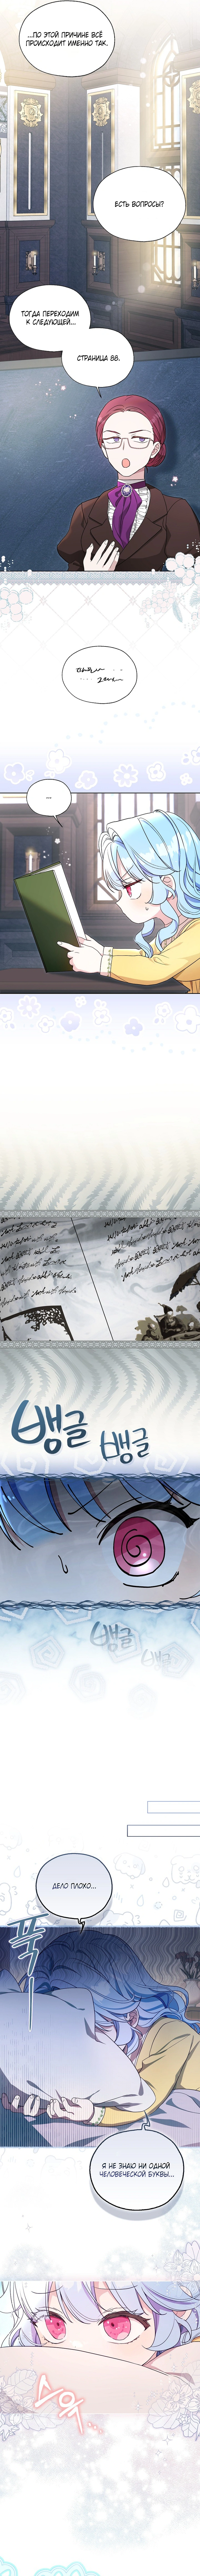 ...ПО ЭТОЙ ПРИЧИНЕ ВСЁ
ПРОИСХОДИТ ИМЕННО ТАК.
ЕСТЬ ВОПРОСЫ?
ТОГДА ПЕРЕХОДИМ
К СЛЕДУЮЩЕЙ...
СТРАНИЦА 88.
...
뱅글
뱅글
뱅글
뱅글
ДЕЛО ПЛОХО...
푹
Я НЕ ЗНАЮ НИ ОДНОЙ
ЧЕЛОВЕЧЕСКОЙ БУКВЫ...